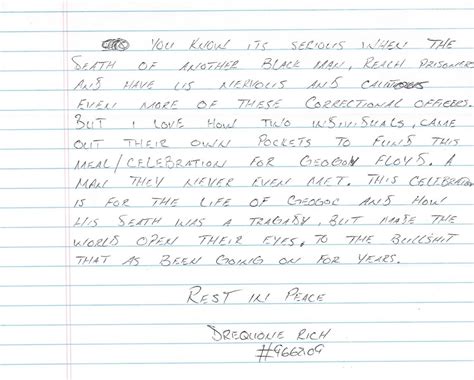 YOU KNOW ITS SERIOUS WHEN THE
DEATH OF ANOTHER BLACK MAN, REACH PRISONERS
AND HAVE US NERVOUS AND CAUTIOUS
EVEN MORE OF THESE CORRECTIONAL OFFICERS.
BUT I LOVE HOW TWO INDIVIDUALS, CAME
OUT THEIR OWN POCKETS TO FUND THIS
MEAL/CELEBRATION FOR GEOGOY FLOYD. A
MAN THEY NEVER EVEN MET. THIS CELEBRATION
IS FOR THE LIFE OF GEOGOE AND HOW
HIS DEATH WAS A TRAGADY, BUT MADE THE
WORLD OPEN THEIR EYES, TO THE BULLSHIT
THAT AS BEEN GOING ON FOR YEARS.
REST IN PEACE
DREQUONE RICH
#966209